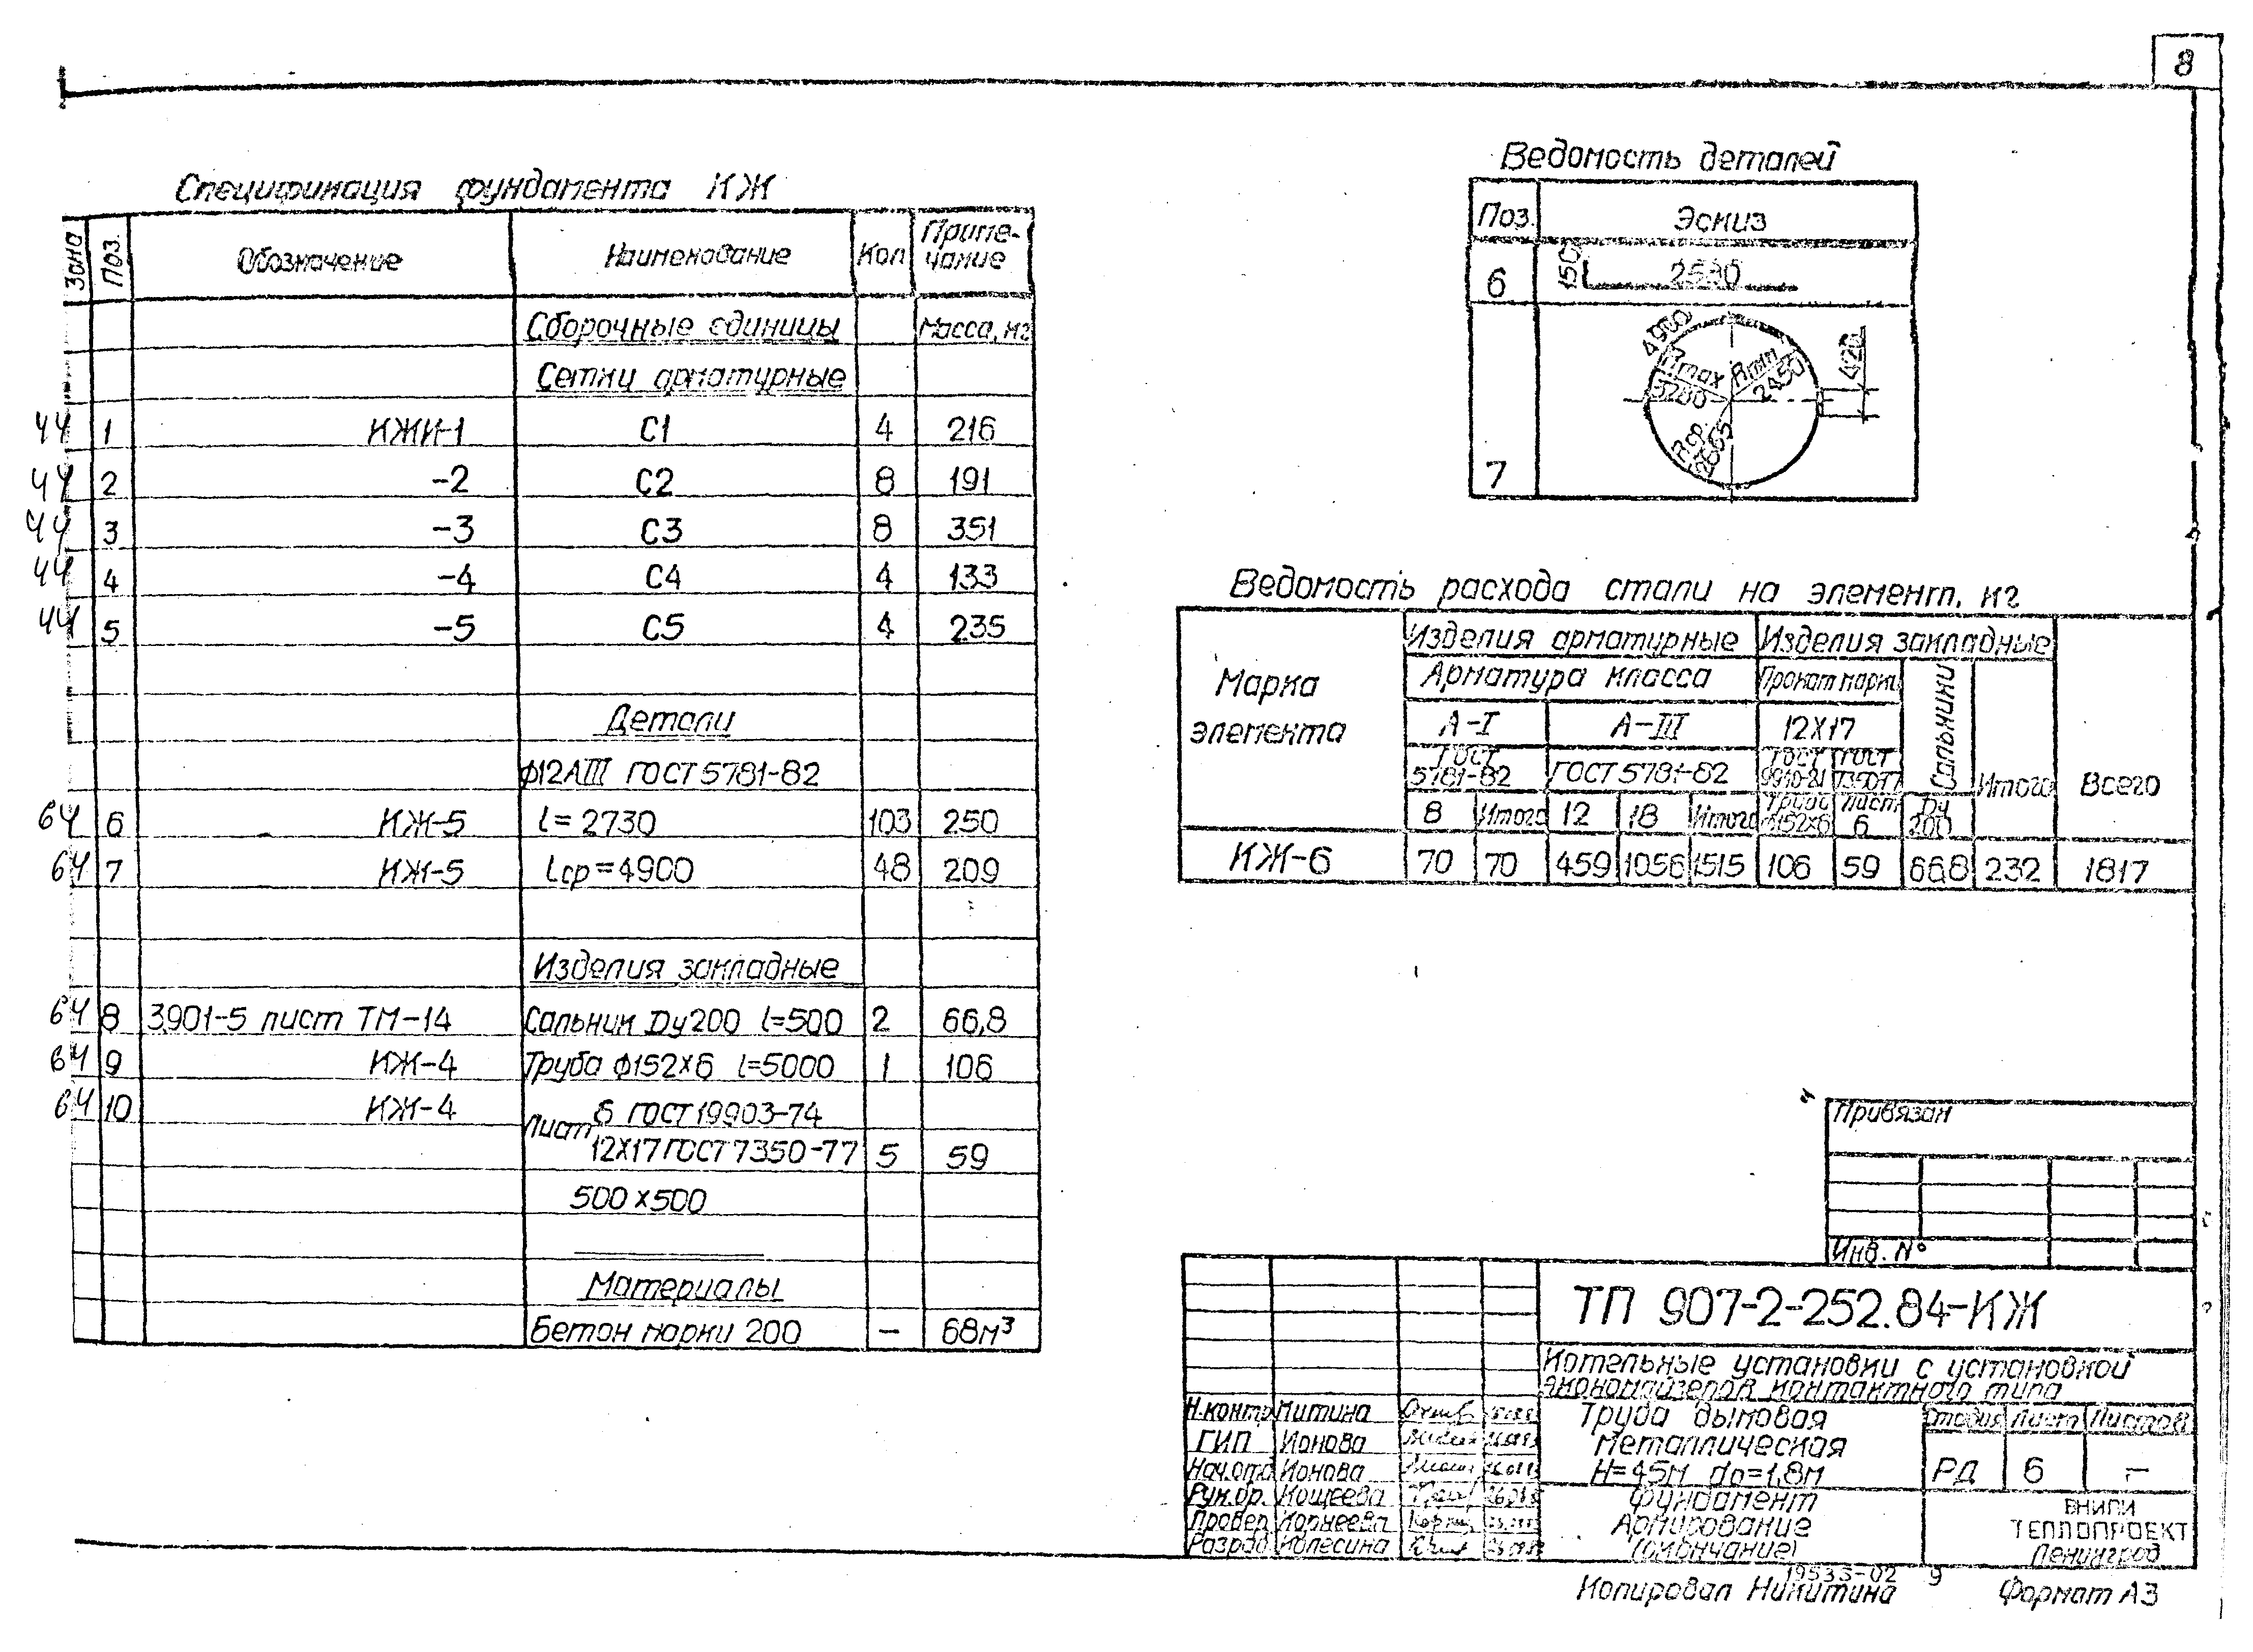 8
Спецификация фундамента КЖ
Зона Поз. Обозначение Наименование Кол Приме-
чание
Сборочные единицы Масса, кг
Сетки арматурные
44 1 КЖИ-1 С1 4 216
44 2 -2 С2 8 191
44 3 -3 С3 8 351
44 4 -4 С4 4 133
44 5 -5 С5 4 235
Детали
ф12АIII ГОСТ 5781-82
64 6 КЖ-5 l=2730 103 250
64 7 КЖ-5 lср=4900 48 209
Изделия закладные
64 8 3.901-5 лист ТМ-14 Сальник Dу200 l=500 2 66,8
64 9 КЖ-4 Труба ф152х6 l=5000 1 106
64 10 КЖ-4 Лист 6 ГОСТ 19903-74
12Х17 ГОСТ 7350-77 5 59
500х500
Материалы
Бетон марки 200 – 68м³
Ведомость деталей
Поз. Эскиз
6 150 2580
7 4900 Rmax 3200 Rmin 2450 Rср. 2665 420
Ведомость расхода стали на элемент, кг
Марка
элемента
Изделия арматурные Изделия закладные
Арматура класса Прокат марки Сальники Итого Всего
А-I А-III 12Х17
ГОСТ
5781-82 ГОСТ 5781-82 ГОСТ
9940-81 ГОСТ
7350-77
8 Итого 12 18 Итого Труба
ф152х6 Лист
6 Dу
200
КЖ-6 70 70 459 1056 1515 106 59 66,8 232 1817
Привязан
Инв. №
ТП 907-2-252.84-КЖ
Котельные установки с установкой
экономайзеров контактного типа
Н.контр Митина
ГИП Ионова
Нач.отд Ионова
Рук.бр. Кощеева
Провер Корнеева
Разраб Колесина
Труба дымовая
металлическая
Н=45м dо=1,8м
Стадия Лист Листов
РД 6 –
Фундамент
Армирование
(окончание)
ВНИПИ
ТЕПЛОПРОЕКТ
Ленинград
19533-02 9
Копировал Никитина Формат А3